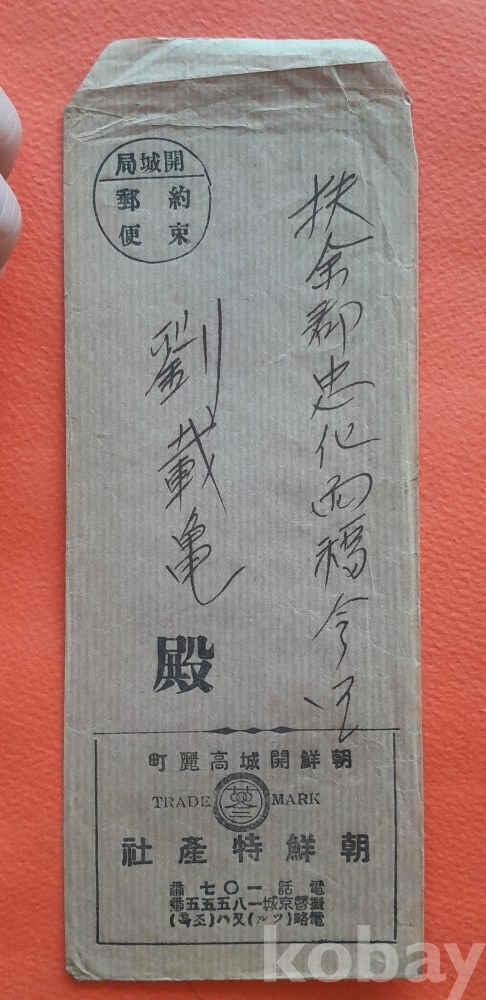 開城局
約束
郵便
扶余郡忠化面福今里
劉載亀
殿
朝鮮開城高麗町
TRADE 蔘 MARK
朝鮮特產社
電話一〇七番
振替京城一八五五五番
電略(ツル)又ハ(조특)
kobay